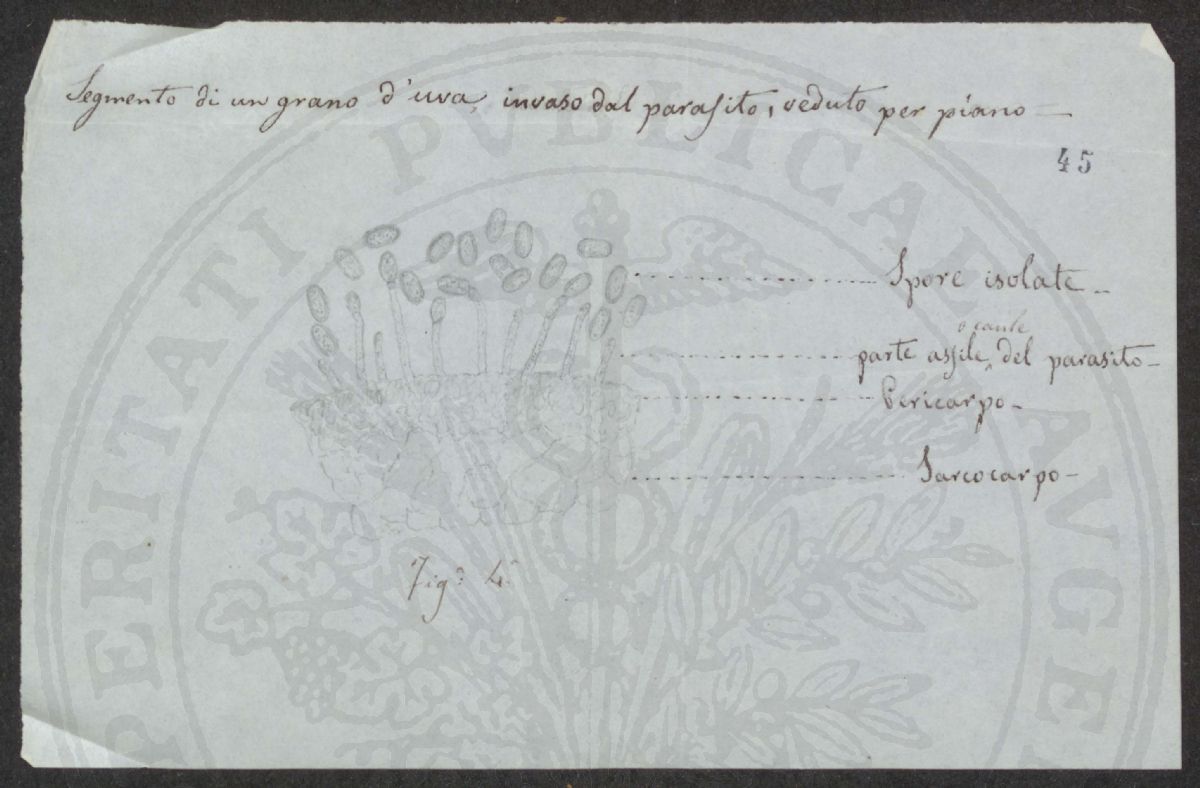 Segmento di un grano d'uva, invaso dal parasito, veduto per piano —
45
Spore isolate -
o caule
parte assile ^ del parasito -
Pericarpo -
Sarcocarpo -
Fig.ᵃ 4.ᵃ
PERITATI PVBLICAE AVGE